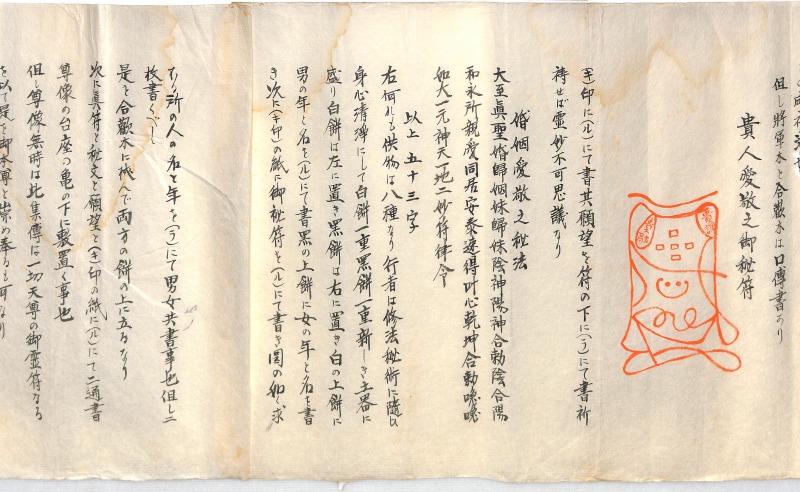 但し將軍木と合歡木は口傳書あり
貴人愛敬之御秘符
(キ)印に(ル)にて書其願望を符の下に(ラ)にて書祈
祷せば霊妙不可思議なり
婚姻愛敬之秘法
大至眞聖婚婦姻妹歸妹陰神陽神合勅陰合陽
和永所親愛同居安泰速得叶心乾坤合勅喼喼
如大一元神天一地二妙符律令
以上五十三字
右何れも供物は八種なり行者は修法秘術に隨ひ
身心清淨にして白餅一重黒餅一重新しき土器に
盛り白餅は左に置き黒餅は右に置き白の上餅に
男の年と名を(ル)にて書黒の上餅に女の年と名を書
き次に(キ印)の紙に御秘符を(ル)にて書き図の如く求
むる所の人の名と年を(ラ)にて男女共書事也但し二
枚書くべし
是を合歡木に挾んで両方の餅の上に立るなり
次に眞符と秘文と願望と(キ)印の紙に(ル)にて二通書
尊像の台座の亀の下に敷置く事也
但し尊像無時は此集傳に一切天尊の御霊符なる
を以て是を御本尊と崇め奉るも可なり